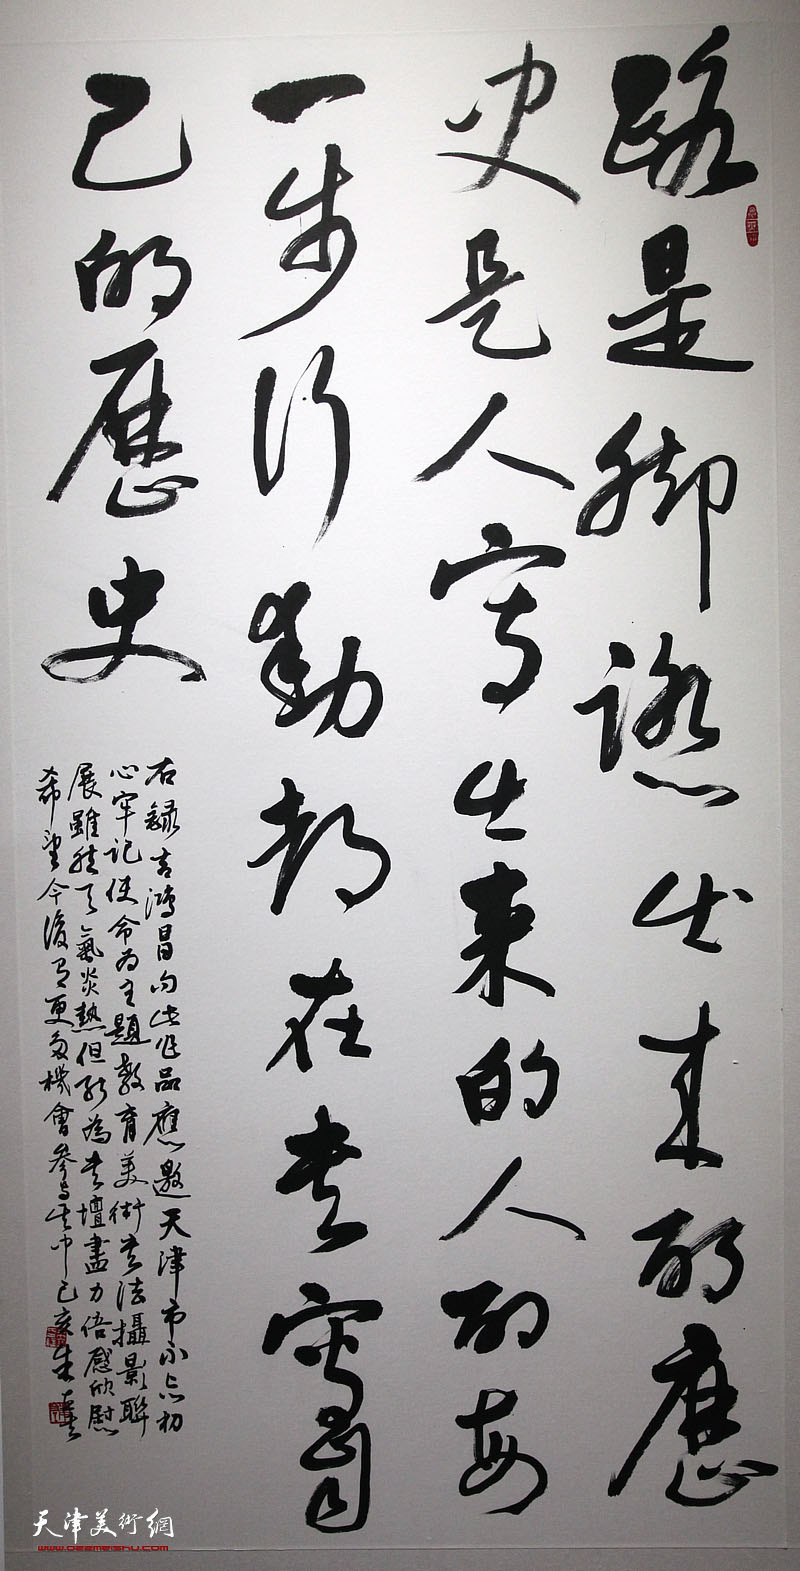 路是脚踏出来的歷
史是人寫出来的人的每
一步行動都在书寫自
己的歷史
右録吉鴻昌句此作品應邀天津市不忘初
心牢記使命为主題教育美術书法攝影聯
展雖然天氣炎熱但能為书壇盡力倍感欣慰
希望今後有更多機會參与其中己亥
天津美術網
www.022meishu.com